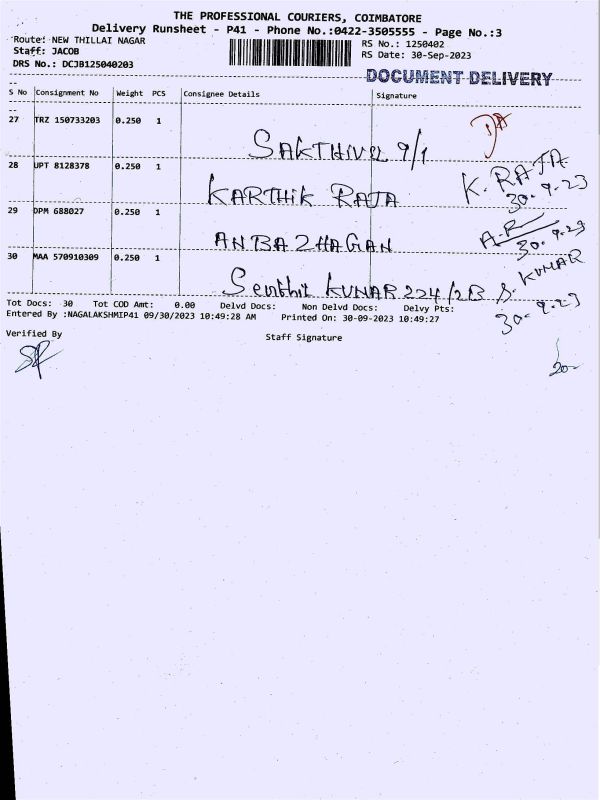 THE PROFESSIONAL COURIERS, COIMBATORE
Delivery Runsheet - P41 - Phone No.:0422-3505555 - Page No.:3
Route: NEW THILLAI NAGAR
RS No.: 1250402
Staff: JACOB
RS Date: 30-Sep-2023
DRS No.: DCJB125040203
DOCUMENT DELIVERY
S No Consignment No Weight PCS Consignee Details Signature
27 TRZ 150733203 0.250 1
SAKTHIVEL 9/1
28 UPT 8128378 0.250 1
KARTHIK RAJA K. RAJA
30.9.23
29 DPM 688027 0.250 1
ANBAZHAGAN A.R
30.9.23
30 MAA 570910309 0.250 1
Senthil KUMAR 224/2B S. KUMAR
30.9.23
Tot Docs: 30 Tot COD Amt: 0.00 Delvd Docs: Non Delvd Docs: Delvy Pts:
Entered By :NAGALAKSHMIP41 09/30/2023 10:49:28 AM Printed On: 30-09-2023 10:49:27
Verified By
Staff Signature